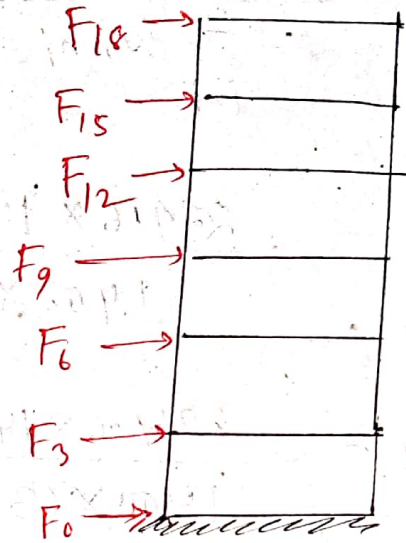 F18
F15
F12
F9
F6
F3
F0